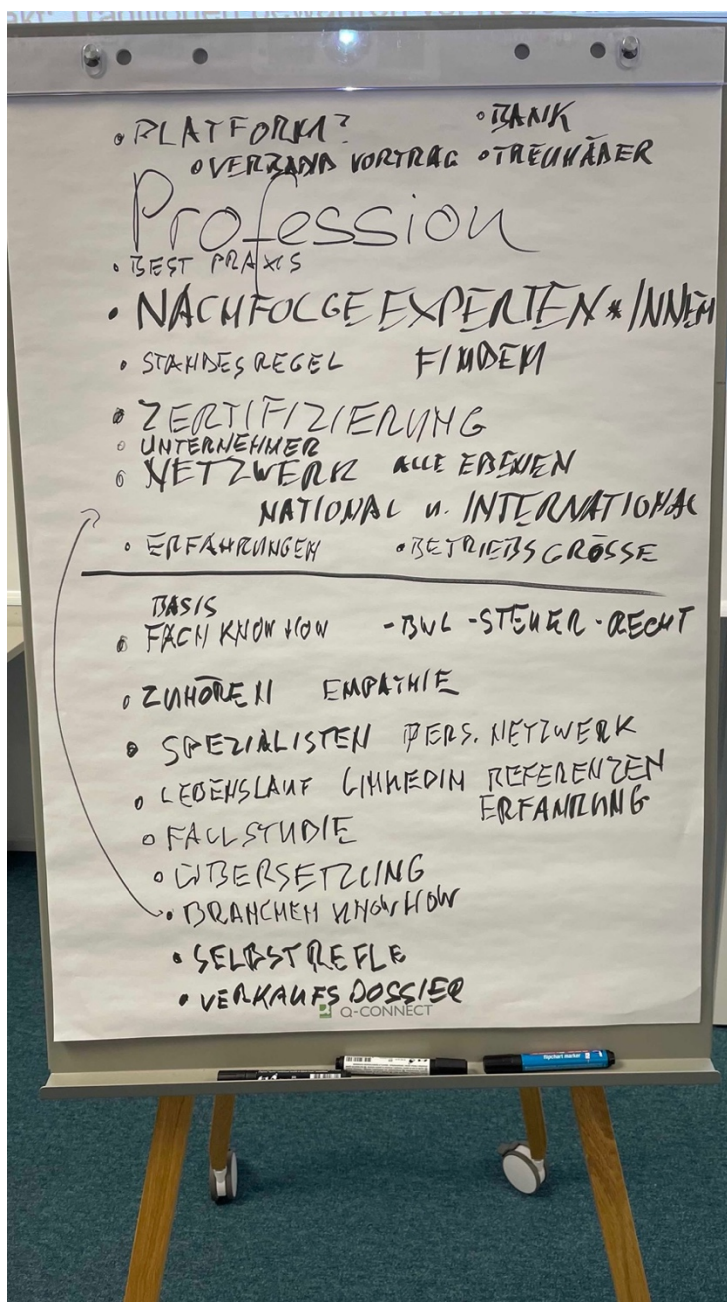 • PLATFORM? • BANK
• VERBAND VORTRAG • TREUHÄDER
Profession
• BEST PRAXIS
• NACHFOLGEEXPERTEN*INNEN
• STANDESREGEL FINDEN
• ZERTIFIZIERUNG
• UNTERNEHMER
• NETZWERK ALLE EBENEN
NATIONAL u. INTERNATIONAL
• ERFAHRUNGEN • BETRIEBSGRÖSSE
BASIS
• FACH KNOW HOW - BWL - STEUER - RECHT
• ZUHÖREN EMPATHIE
• SPEZIALISTEN PERS. NETZWERK
• LEBENSLAUF LINKEDIN REFERENZEN
ERFAHRUNG
• FALLSTUDIE
• ÜBERSETZUNG
• BRANCHEN KNOW HOW
• SELBSTREFLE
• VERKAUFSDOSSIER
Q-CONNECT
flipchart marker